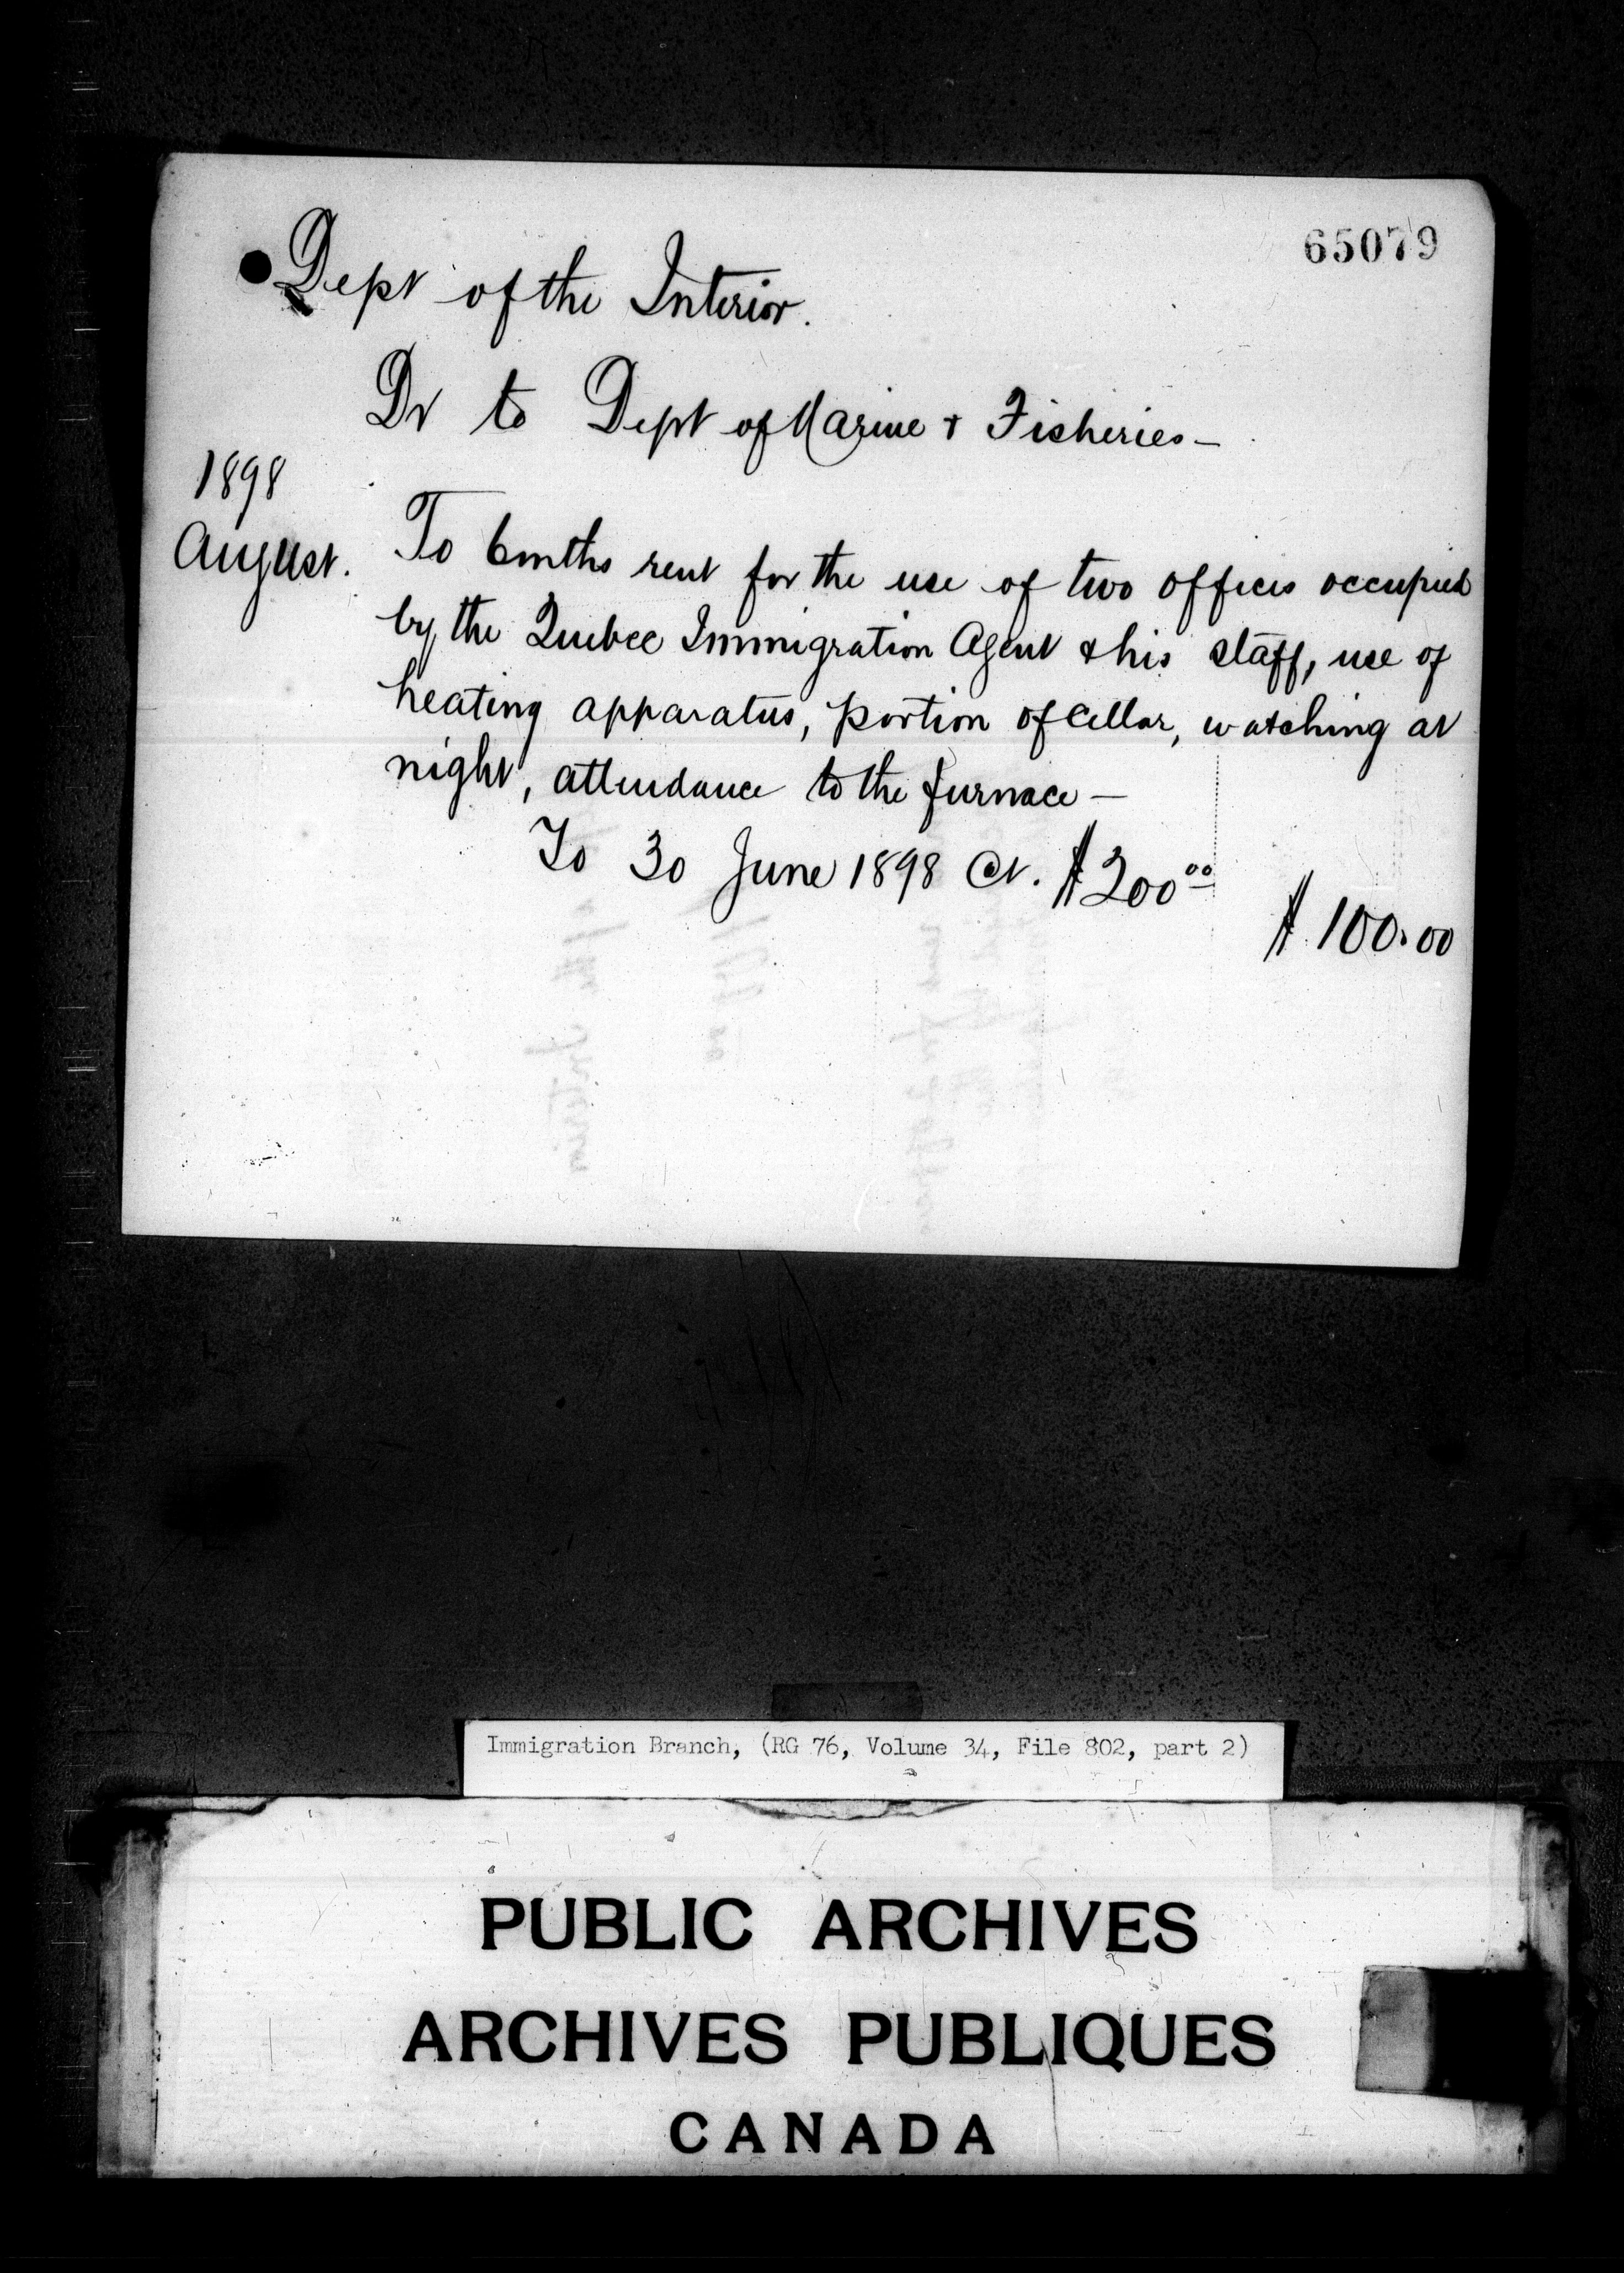 65079
Dept of the Interior.
Dr to Dept of Marine & Fisheries—
1898
August.
To 6 mths rent for the use of two offices occupied
by the Quebec Immigration Agent & his staff, use of
heating apparatus, portion of cellar, watching at
night, attendance to the furnace —
To 30 June 1898 @ $200 00
$100.00
Immigration Branch, (RG 76, Volume 34, File 802, part 2)
PUBLIC ARCHIVES
ARCHIVES PUBLIQUES
CANADA